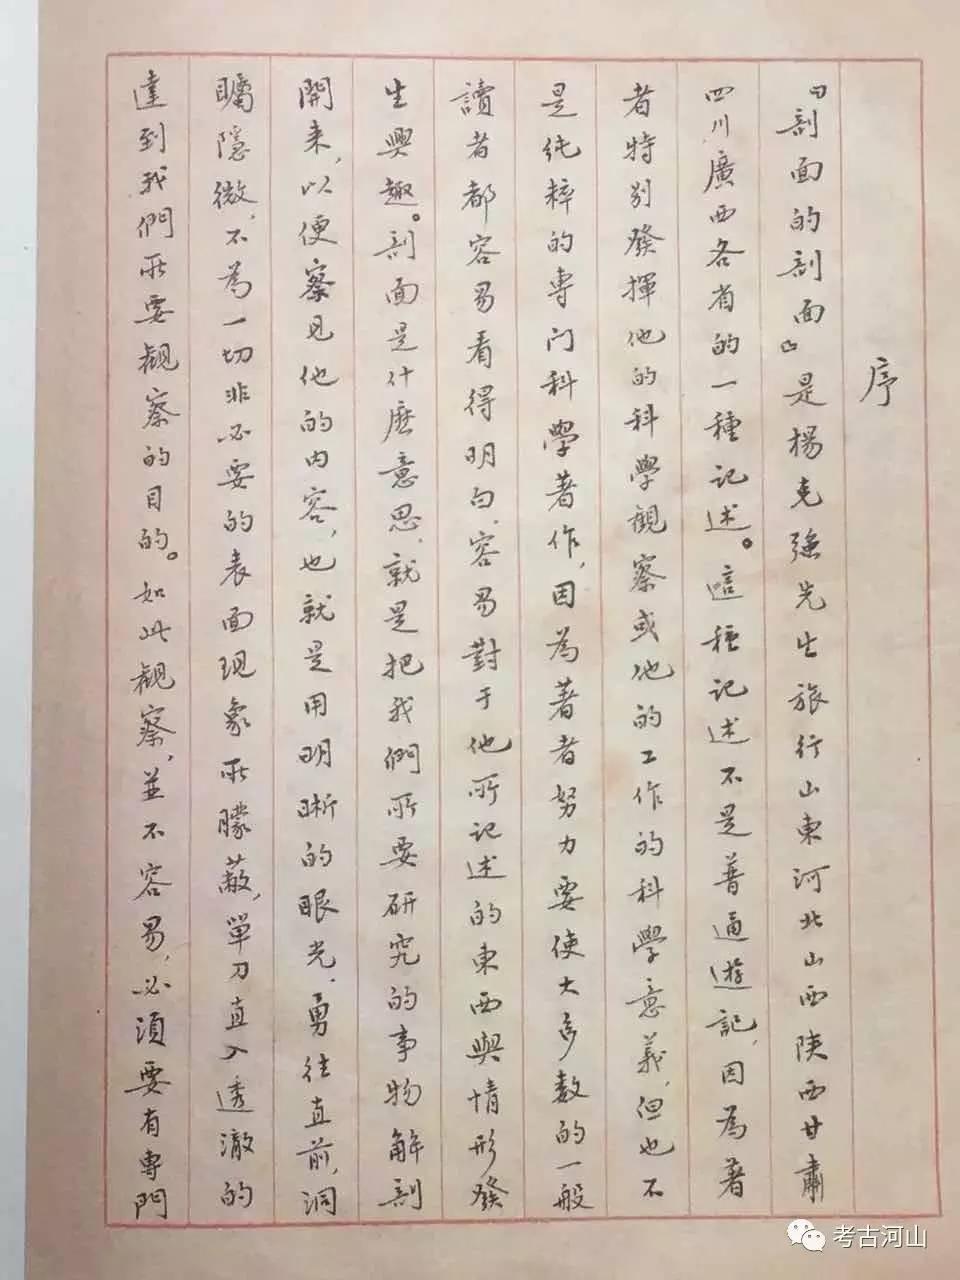 序
『剖面的剖面』是楊克強先生旅行山東河北山西陝西甘肅
四川廣西各省的一種記述。這種記述不是普通遊記，因為著
者特别發揮他的科學觀察或他的工作的科學意義，但也不
是純粹的專门科學著作，因為著者努力要使大多数的一般
讀者都容易看得明白，容易對于他所記述的東西與情形發
生興趣。剖面是什麽意思，就是把我們所要研究的事物解剖
開来，以便察见他的内容，也就是用明晰的眼光，勇往直前，洞
矚隱微，不為一切非必要的表面现象所矇蔽，單刀直入透澈的
達到我們所要觀察的目的。如此觀察，並不容易，必須要有專門
考古河山